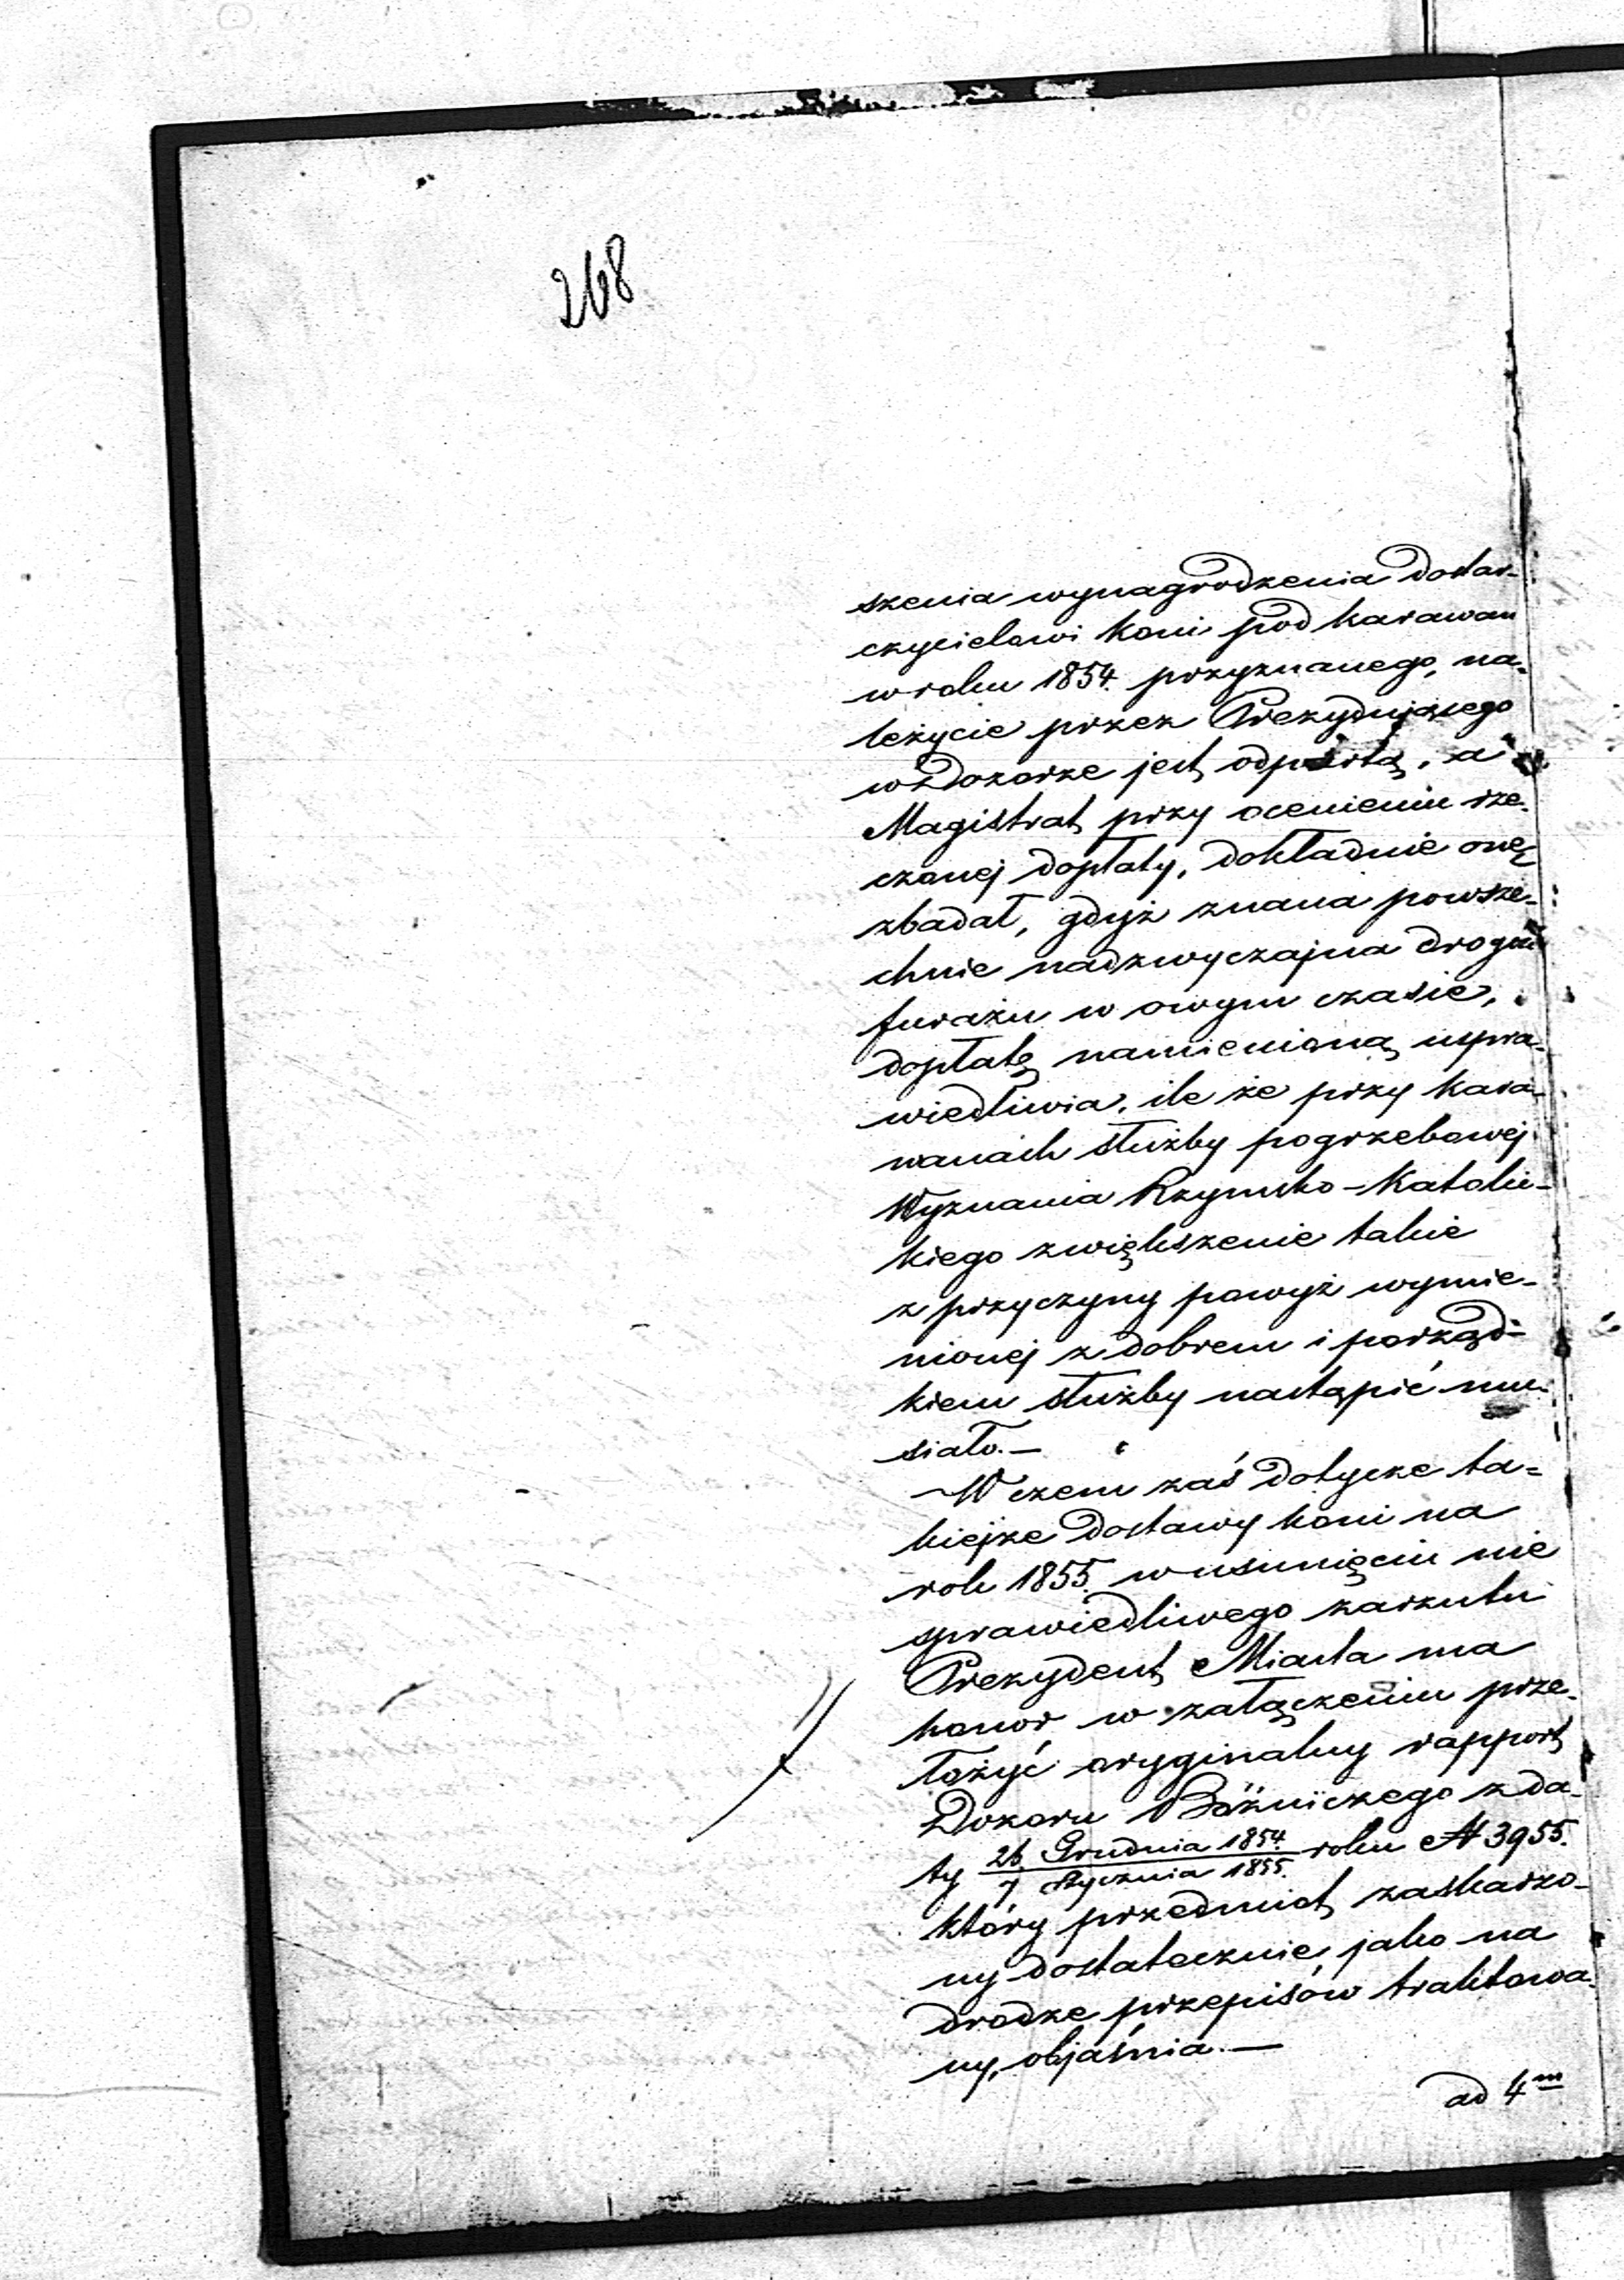 268
szenia wynagrodzenia dostar-
czycielowi koni pod karawan
w roku 1854. przyznanego, na-
leżycie przez Prezydującego
w Dozorze jest odpartą, a
Magistrat przy ocenieniu rze-
czonej dopłaty, dokładnie onę
zbadał, gdyż znana powsze-
chnie nadzwyczajna drogość
furażu w owym czasie,
dopłatę namienioną uspra-
wiedliwia, ile że przy kara-
wanach służby pogrzebowej
Wyznania Rzymsko-Katolic-
kiego zwiększenie takie
z przyczyny powyż wymie-
nionej z dobrem i porząd-
kiem służby nastąpić mu-
siało.—
W czem zaś dotycze ta-
kiejże dostawy koni na
rok 1855. w usunięciu nie
sprawiedliwego zarzutu
Prezydent Miasta ma
honor w załączeniu prze-
łożyć oryginalny rapport
Dozoru Bóżniczego z da-
ty 26 Grudnia 1854./7 Stycznia 1855. roku N 3955.
który przedmiot zaskarżo-
ny dostatecznie, jako na
drodze przepisów traktowa-
ny, objaśnia.—
ad 4m